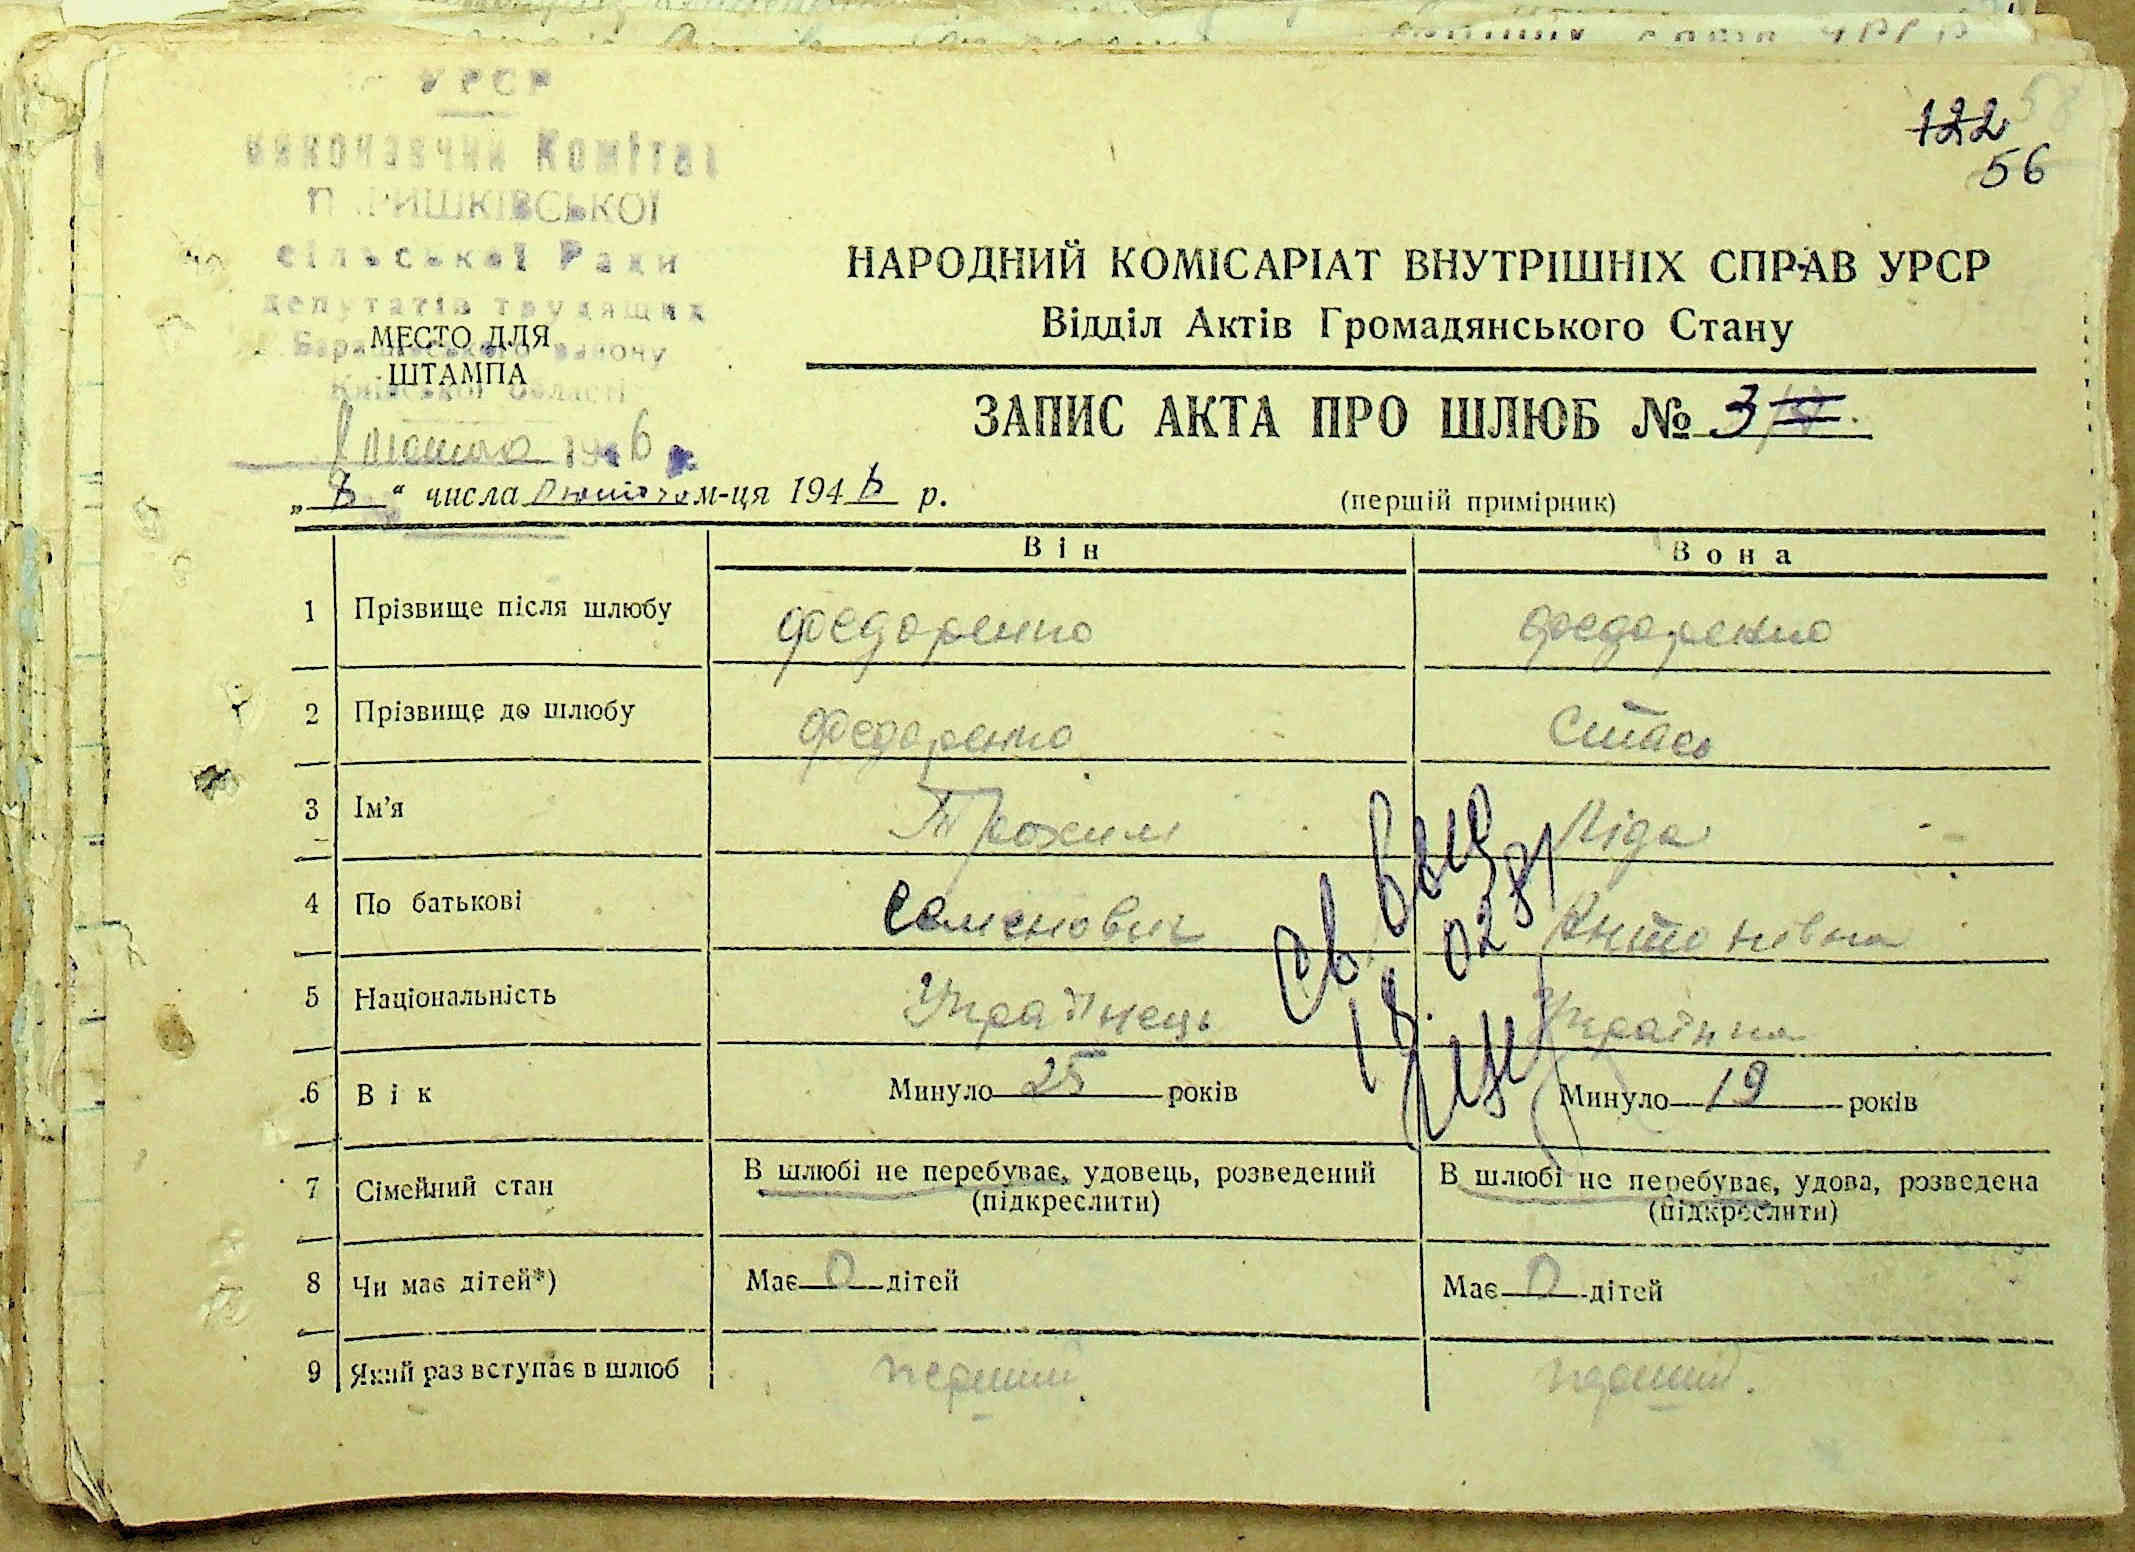 УРСР
Виконавчий Комітет
сільської Ради
депутатів трудящих
Баришівського району
Київської області
МЕСТО ДЛЯ
ШТАМПА
8 лютого 1946 р.
58
122
56
НАРОДНИЙ КОМІСАРІАТ ВНУТРІШНІХ СПРАВ УРСР
Відділ Актів Громадянського Стану
ЗАПИС АКТА ПРО ШЛЮБ № 3
„8“ числа лютого м-ця 1946 р.
(перший примірник)
Він Вона
1 Прізвище після шлюбу Федоренко Федоренко
2 Прізвище до шлюбу Федоренко Стась
3 Ім'я Трохим Ліда
4 По батькові Семенович Антонівна
5 Національність Українець Українка
6 Вік Минуло 25 років Минуло 19 років
7 Сімейний стан В шлюбі не перебуває, удовець, розведений (підкреслити) В шлюбі не перебуває, удова, розведена (підкреслити)
8 Чи має дітей*) Має 0 дітей Має 0 дітей
9 Який раз вступає в шлюб перший перший.
Св.
18.02.81